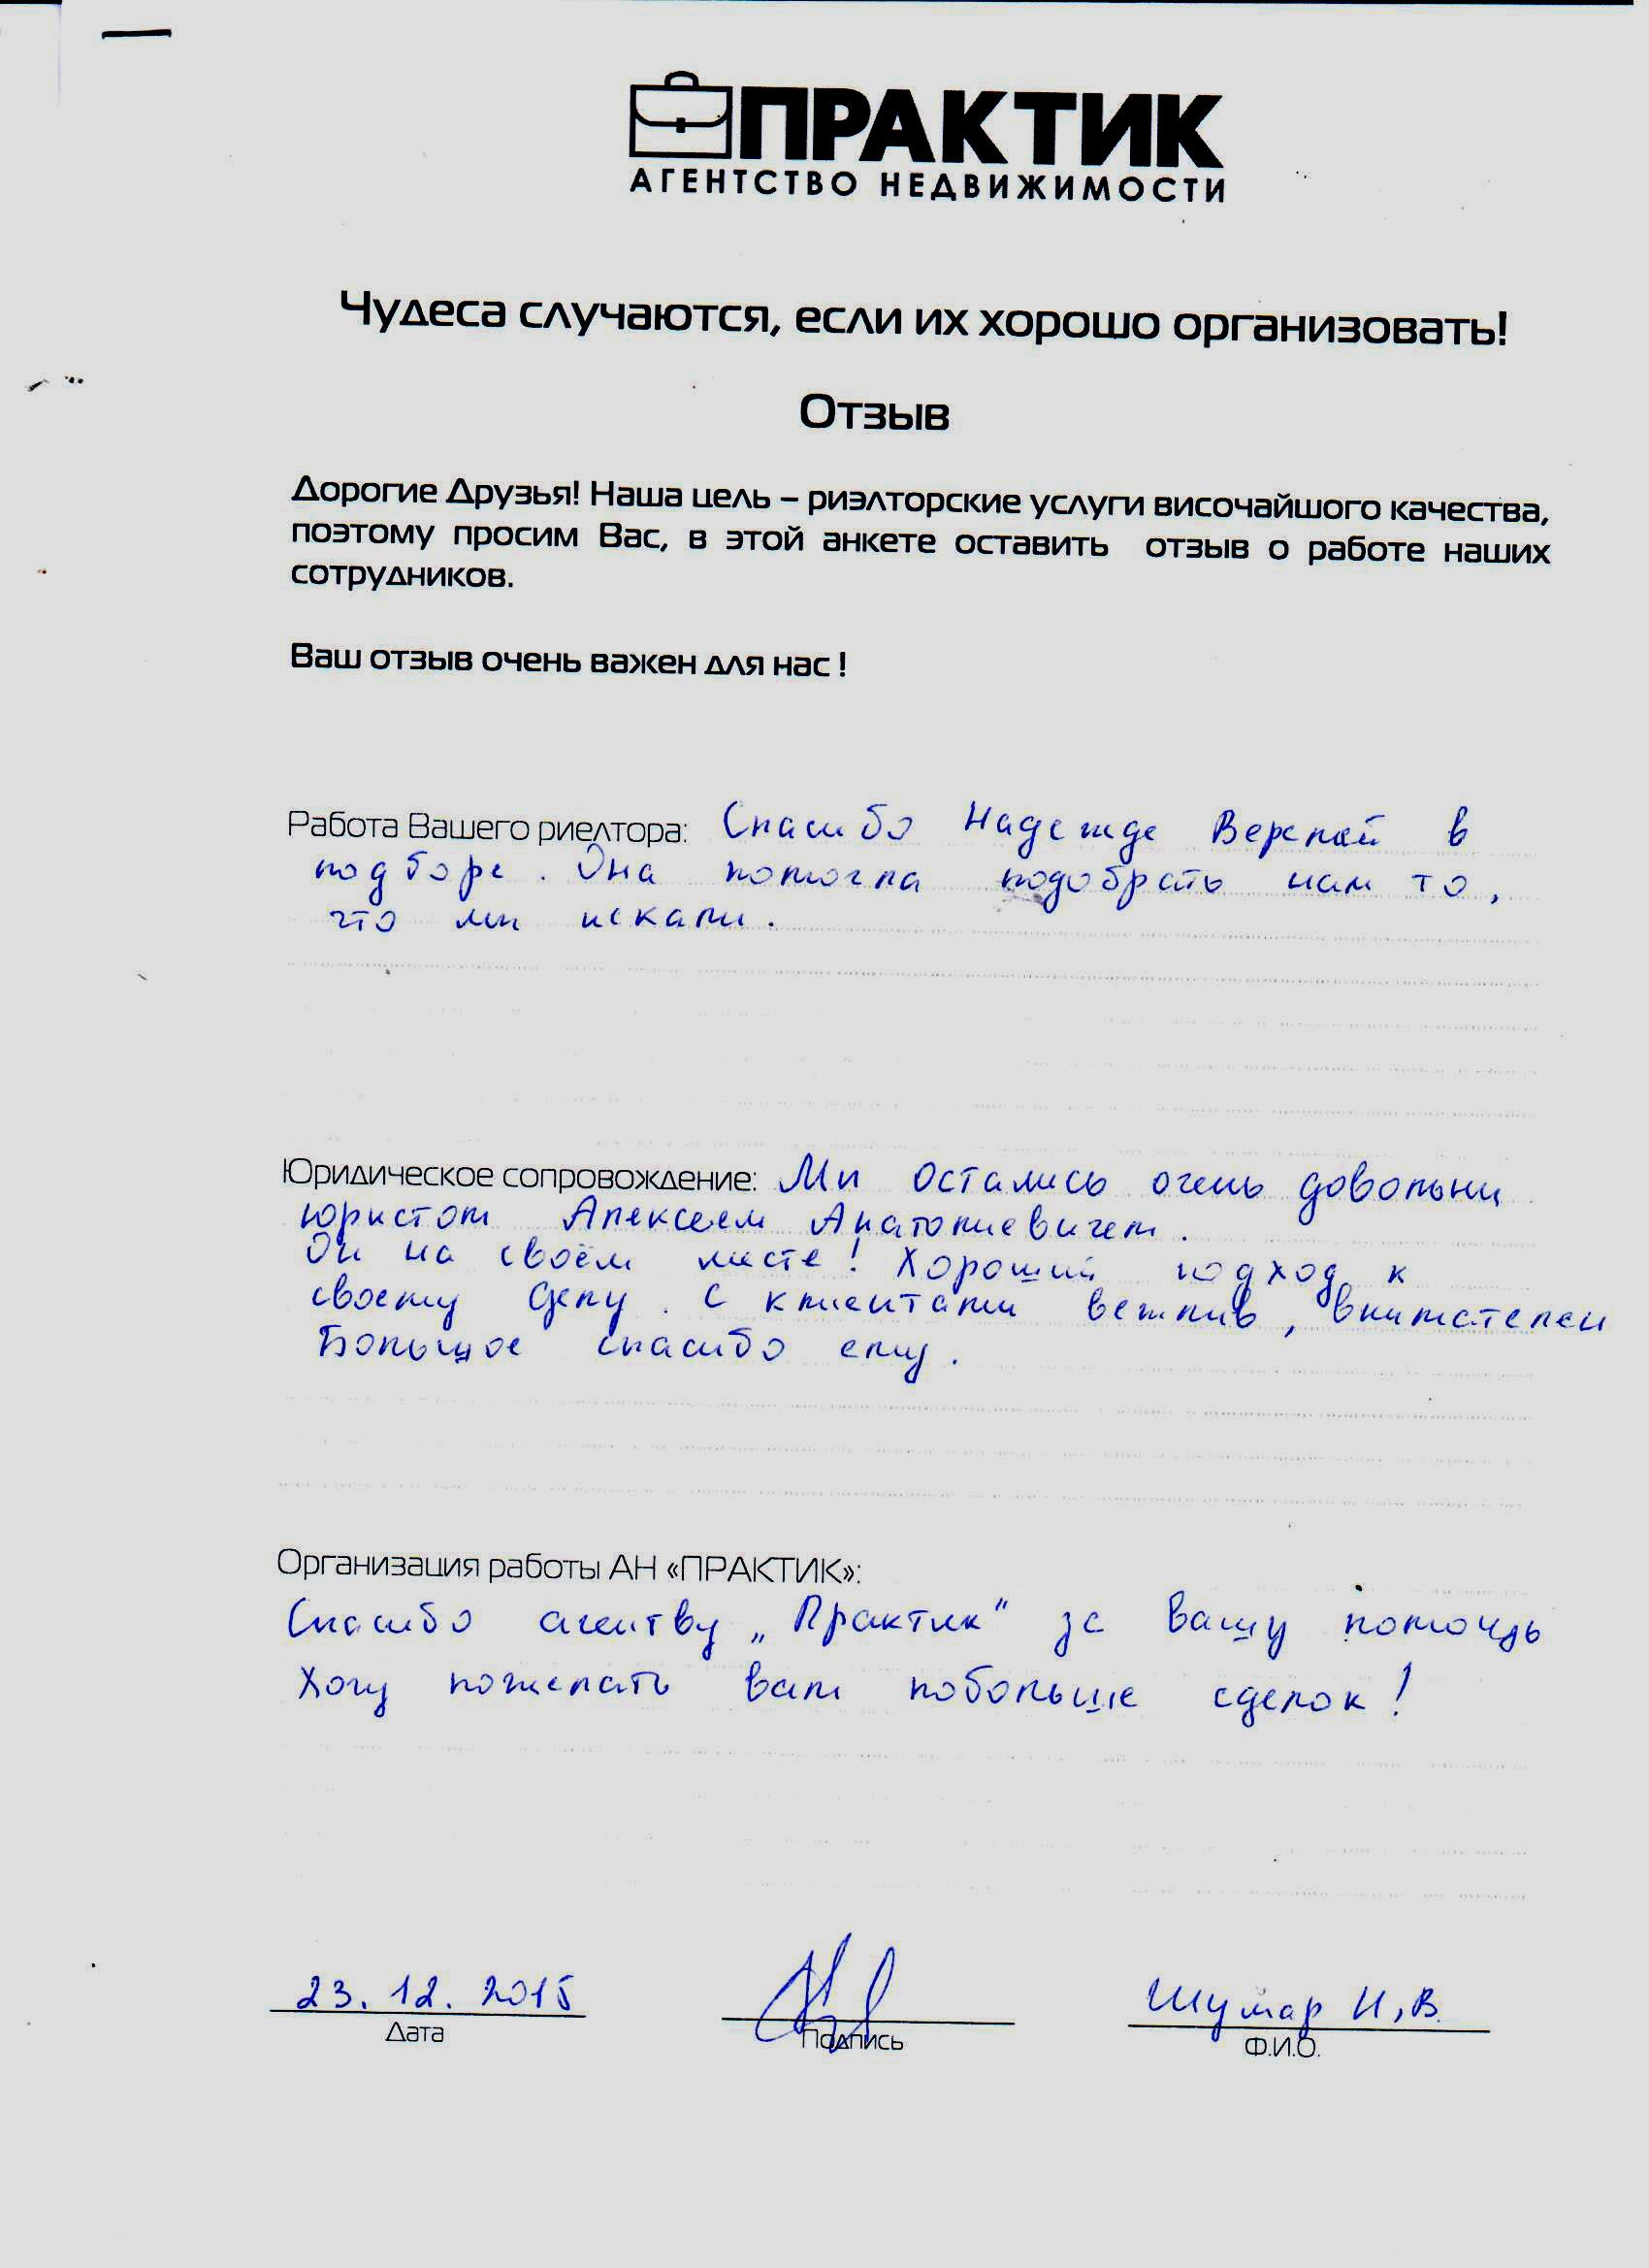 ПРАКТИК
АГЕНТСТВО НЕДВИЖИМОСТИ
Чудеса случаются, если их хорошо организовать!
Отзыв
Дорогие Друзья! Наша цель – риэлторские услуги височайшого качества,
поэтому просим Вас, в этой анкете оставить отзыв о работе наших
сотрудников.
Ваш отзыв очень важен для нас !
Работа Вашего риелтора: Спасибо Надежде в
подборе. Она помогла подобрать нам то,
что ми искали.
Юридическое сопровождение: Ми остались очень довольни
юристом Алексеем Анатолиевичем.
Он на своём месте! Хороший подход к
своему делу. С клиентами вежлив, внимателен
Большое спасибо ему.
Организация работы АН «ПРАКТИК»:
Спасибо агентву „Практик" за Вашу
Хочу пожелать вам побольше сделок!
23.12.2015
Шумар Н,В.
Дата
Подпись
Ф.И.О.